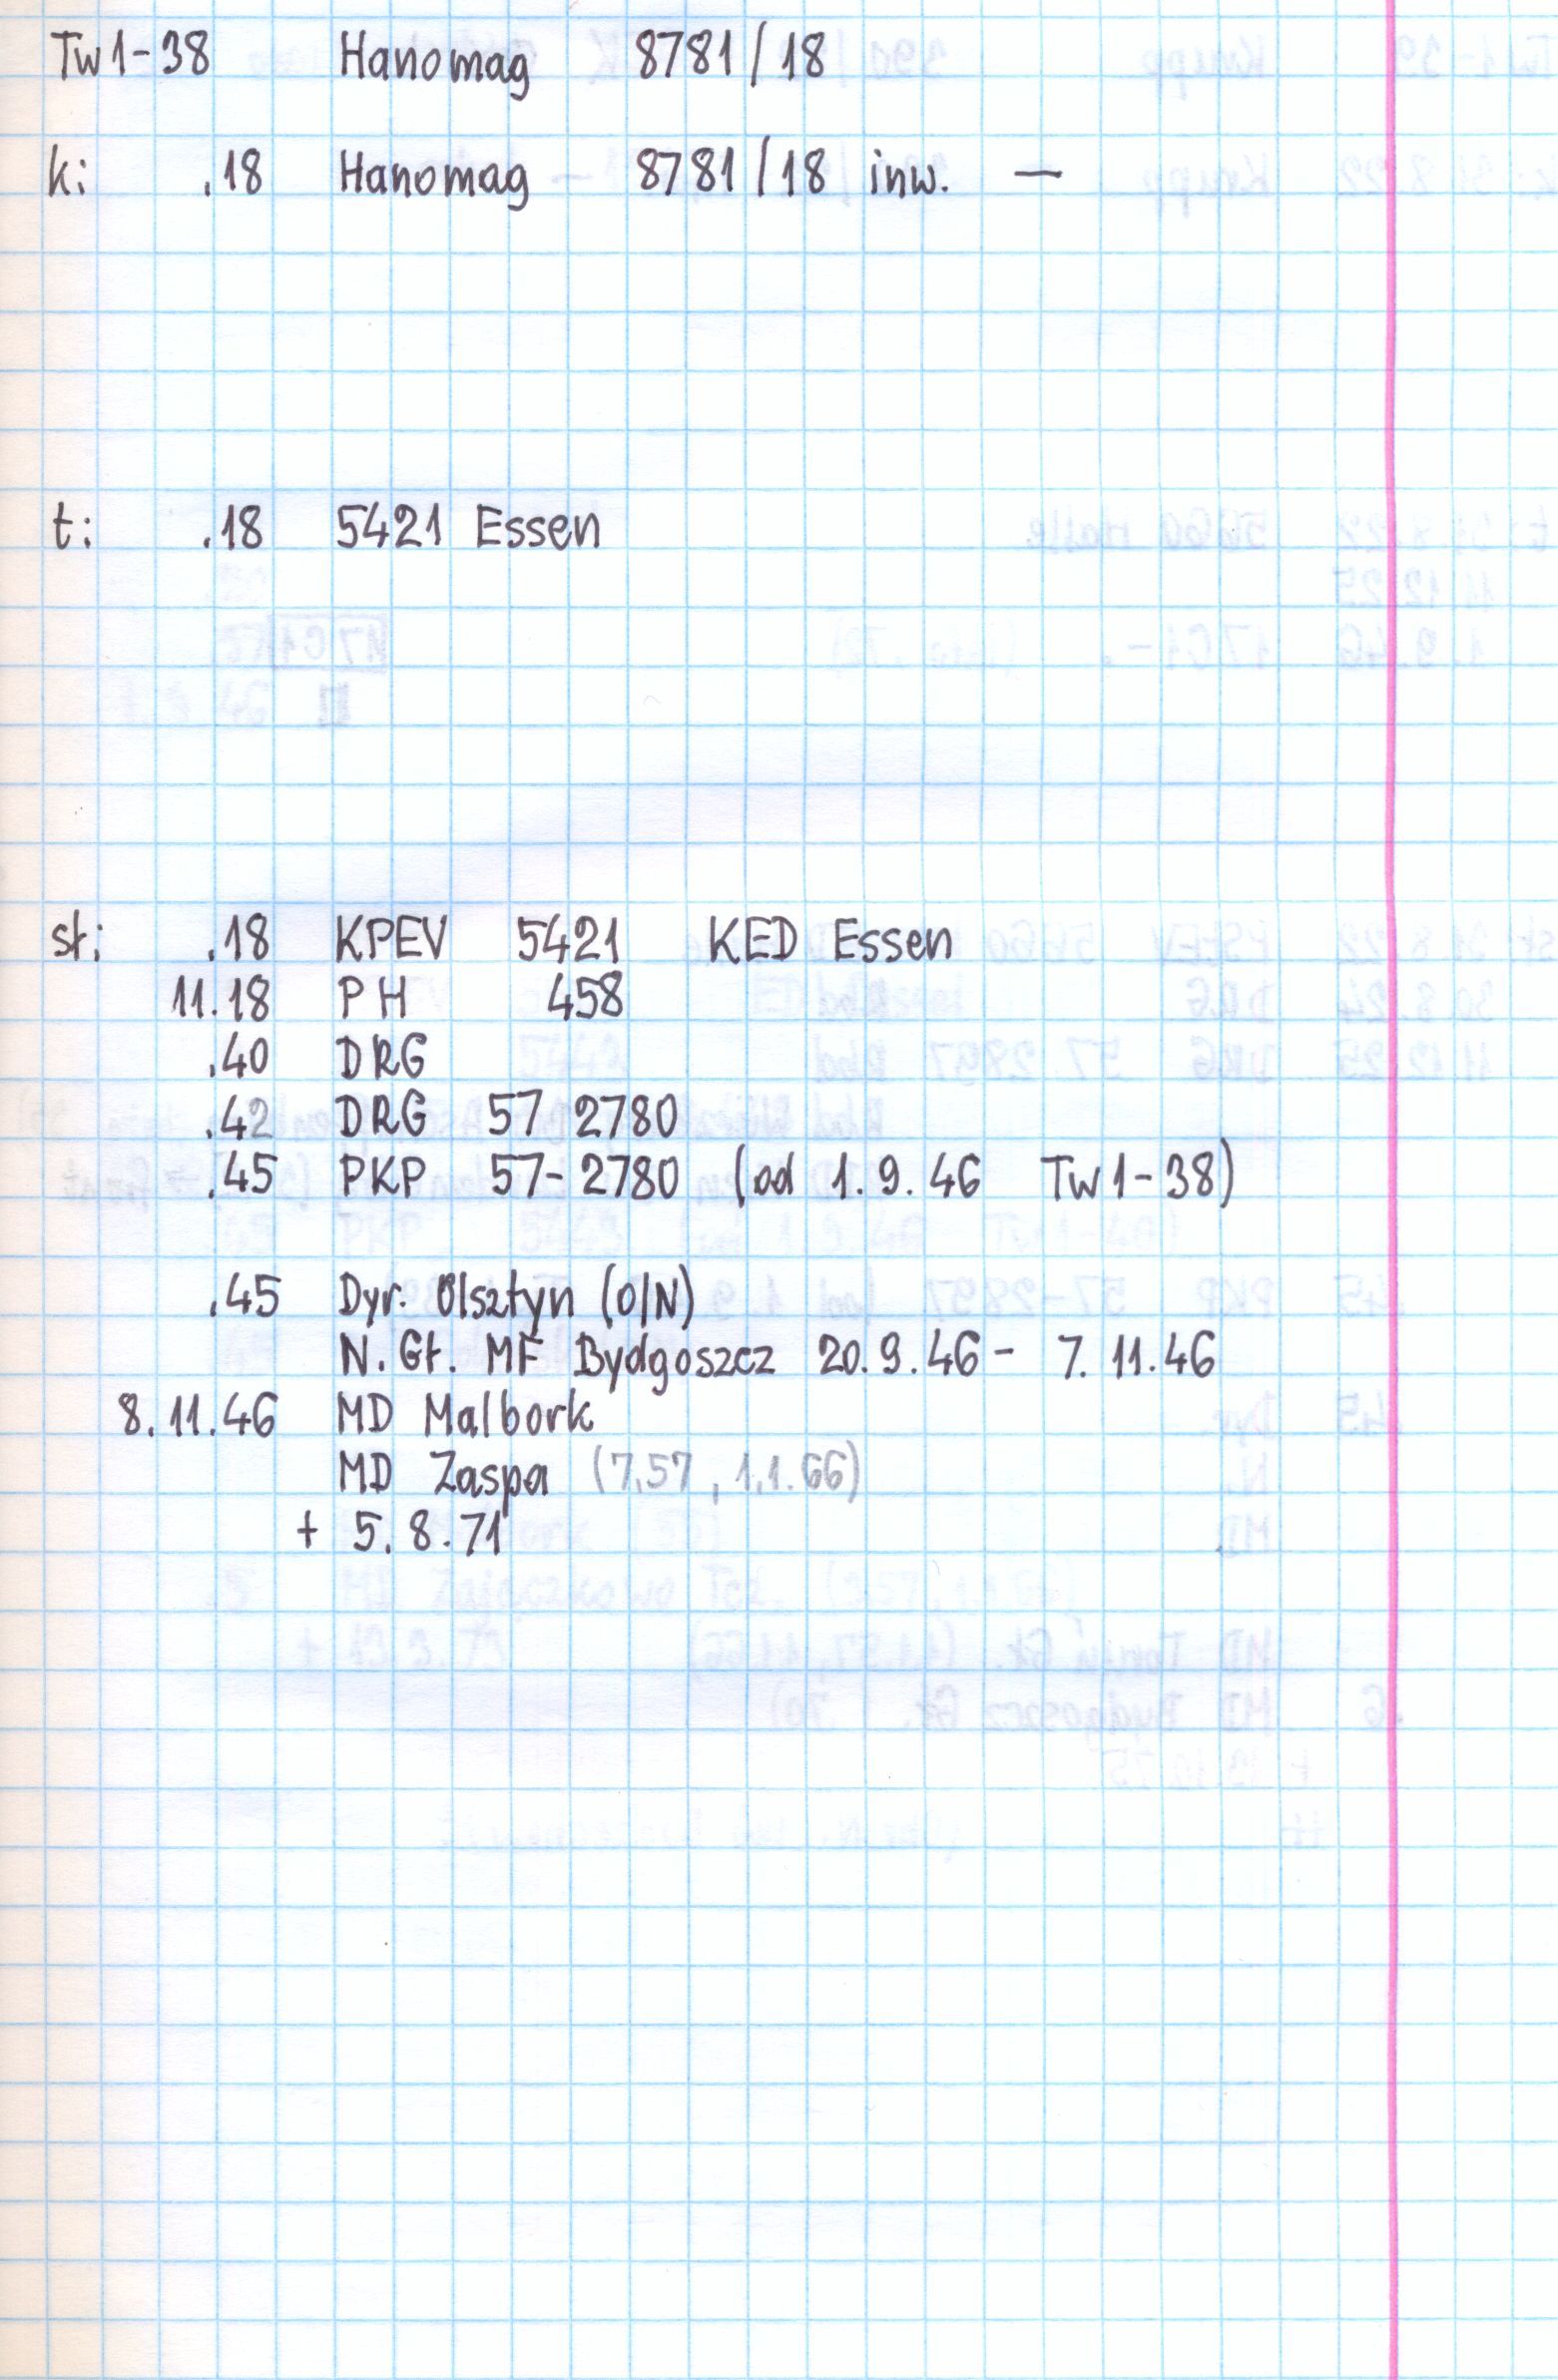 Tw1-38 Hanomag 8781/18
k: .18 Hanomag 8781/18 inw. —
t: .18 5421 Essen
st: .18 KPEV 5421 KED Essen
11.18 PH 458
.40 DRG
.42 DRG 57 2780
.45 PKP 57-2780 (od 1.9.46 Tw1-38)
.45 Dyr. Olsztyn (O/N)
N. Gł. MF Bydgoszcz 20.9.46 - 7.11.46
8.11.46 MD Malbork
MD Zaspa (7.57, 1.1.66)
+ 5.8.71